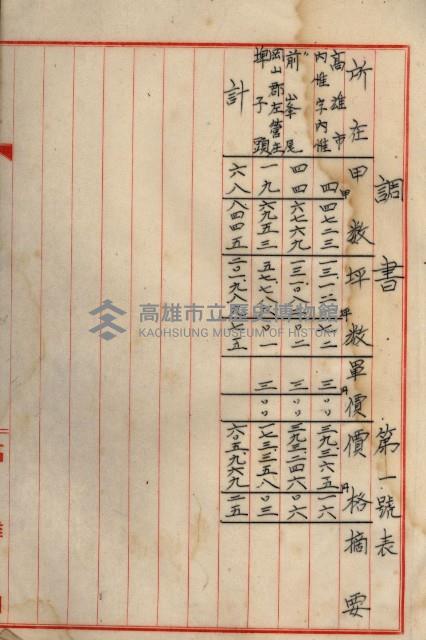 調書　第一號表
所在　甲數　坪數　單價　價格　摘要
高雄市內惟字內惟　四甲四七二三　一三、一二一坪七二　三円〇〇　三九、三六五円一六
〃　前峯尾　四四　六七六九　一三一、〇八二　〇二　三　〇〇　三九三、二四六　〇六
岡山郡左營庄埤子頭　一九　六九五三　五七、七八六　〇一　三　〇〇　一七三、三五八　〇三
計　六八　八四四五　二〇一、九八九　七五　六〇五、九六九　二五
高雄市立歷史博物館
KAOHSIUNG MUSEUM OF HISTORY